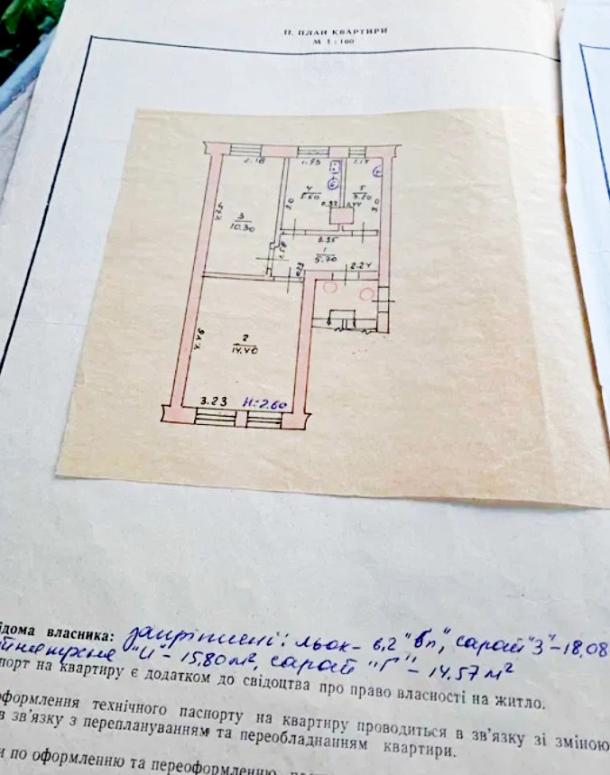 II. ПЛАН КВАРТИРИ
М 1 : 100
2.18
1.93
1.14
4
5.60
5
3.20
3.0
3.0
4.75
3
10.30
2.95
1
5.70
1.58
2.24
4.45
2
14.40
3.23
H=2.60
ідома власника: закріплені: льох - 6,2 "бп", сарай "З" - 18,08
"И" - 15,80 м², сарай "Г" - 14,57 м²
порт на квартиру є додатком до свідоцтва про право власності на житло.
оформлення технічного паспорту на квартиру проводиться в зв'язку зі зміною
в зв'язку з переплануванням та переобладнанням квартири.
и по оформленню та переоформленню